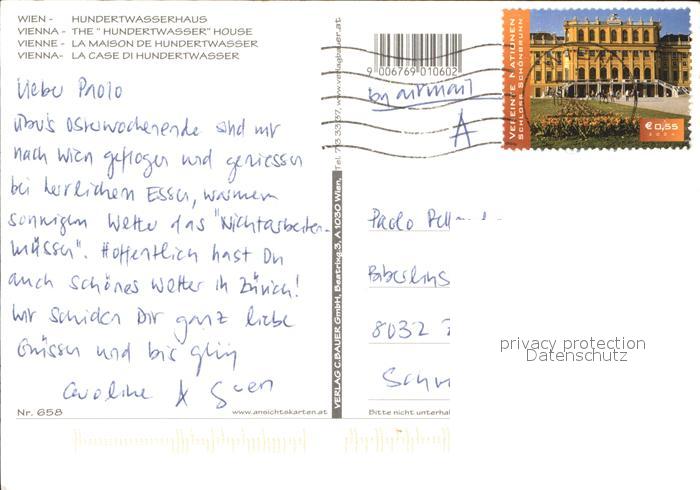 WIEN - HUNDERTWASSERHAUS
VIENNA - THE "HUNDERTWASSER" HOUSE
VIENNE - LA MAISON DE HUNDERTWASSER
VIENNA - LA CASE DI HUNDERTWASSER
Lieber Paolo
übers Osterwochenende sind wir
nach Wien geflogen und geniessen
bei herrlichem Essen, warmem
sonnigem Wetter das "Nichtarbeiten-
müssen". Hoffentlich hast Du
auch schönes Wetter in Zürich!
Wir schicken Dir ganz liebe
Grüsse und bis
Caroline & Sven
Nr. 658
www.ansichtskarten.at
VERLAG C.BAUER GmbH, Beatrixg.3, A 1030 Wien, Tel. 713 33 37, www.verlagbauer.at
9 006769 010602
by airmail
A
VEREINTE NATIONEN
SCHLOSS SCHÖNBRUNN
€ 0,55
2004
Paolo
8032
Bitte nicht unterhal
privacy protection
Datenschutz